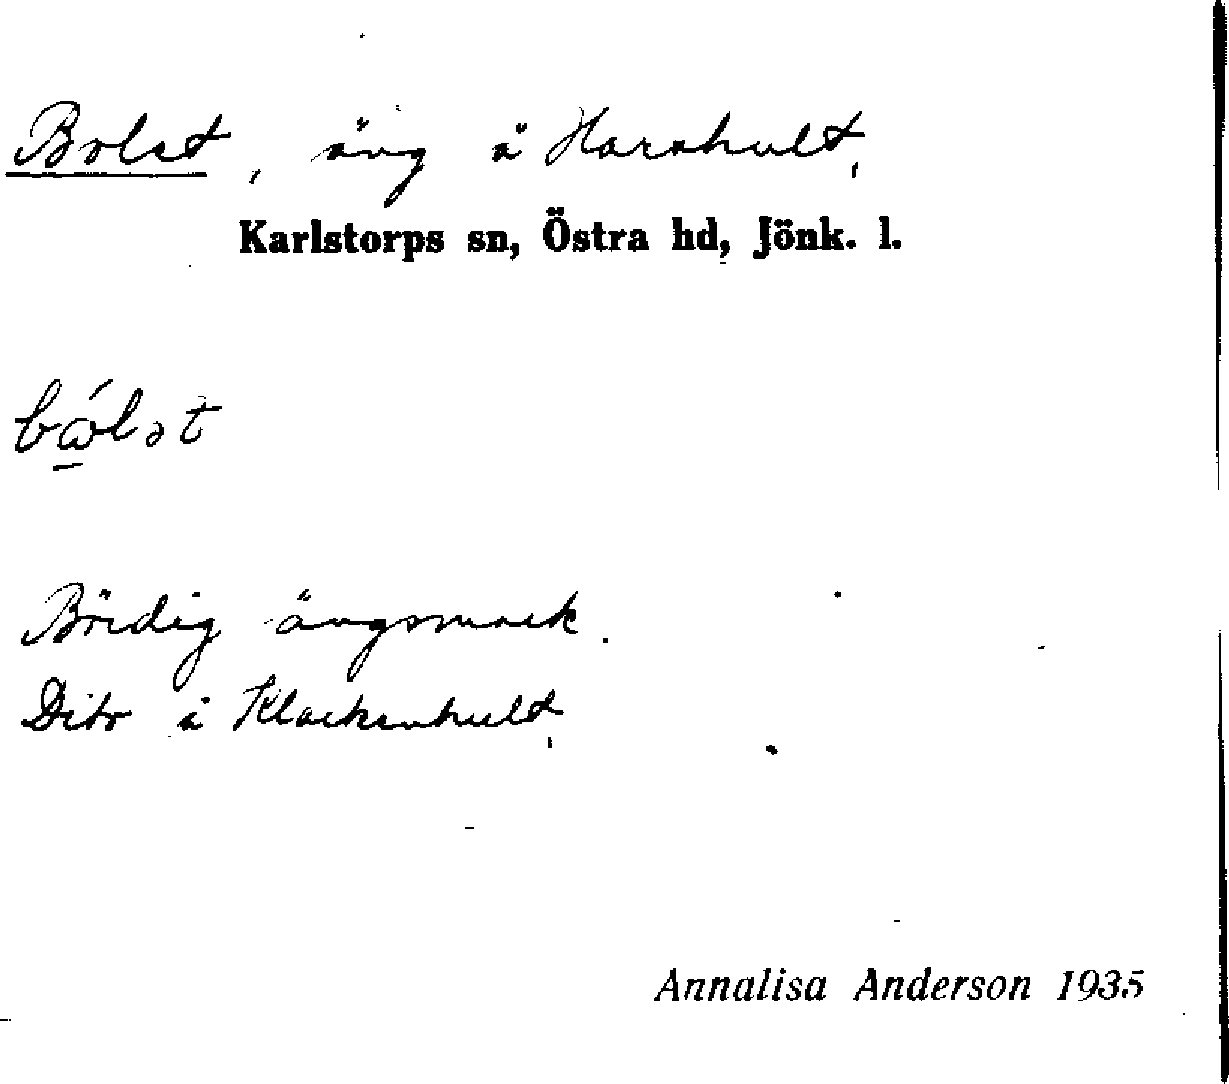 Bolet, äng å Harahult,
Karlstorps sn, Östra hd, Jönk. l.
Bördig ängsmark.
Dito å Klackenhult
Annalisa Anderson 1935